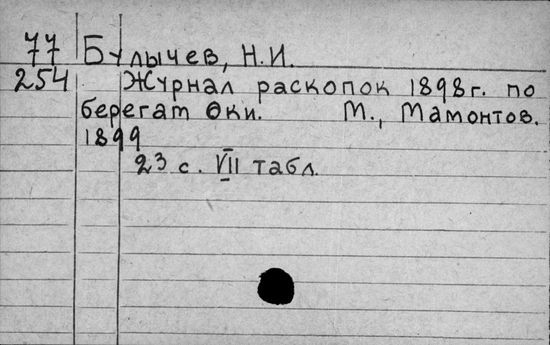 77 Булычев, Н.И.
254 Журнал раскопок 1898 г. по
берегам Оки. М., Мамонтов.
1899
23 с. VII табл.